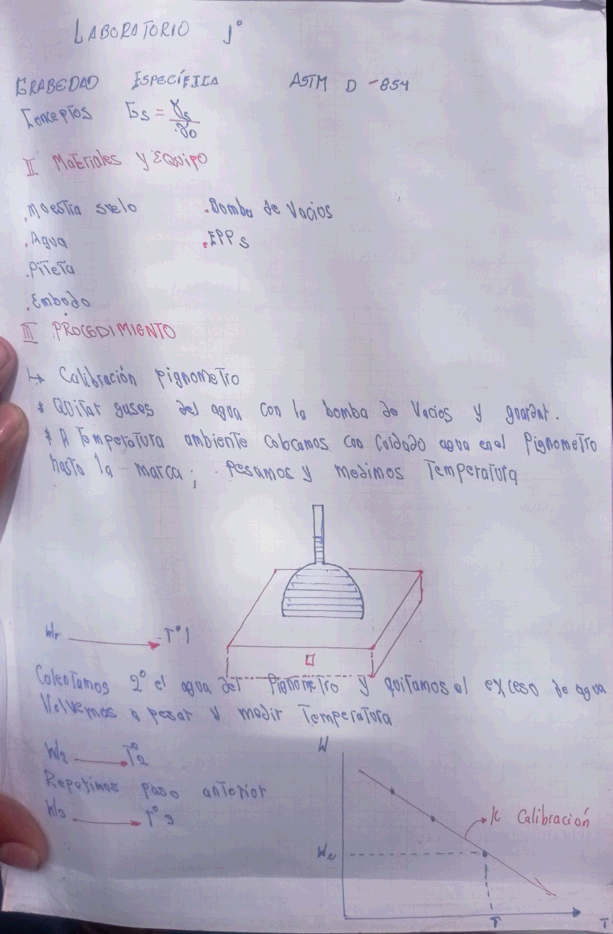 LABORATORIO 1°
GRABEDAD ESPECÍFICA ASTM D-854
Conceptos Gs = γs / γo
II Materiales y Equipo
. Muestra suelo . Bomba de Vacios
. Agua . EPPs
. Piseta
. Embodo
III PROCEDIMIENTO
↳ Calibración pignometro
* Quitar gases del agua con la bomba de Vacios y guardar.
* A Temperatura ambiente colocamos con Cuidado agua en el Pignometro
hasta la marca; Pesamos y medimos Temperatura
W1 → T°1
Calentamos 2° el agua del Pignometro y quitamos el exceso de agua
Volvemos a pesar y medir Temperatura
W2 → T°2
Repetimos paso anterior
W3 → T°3
W
K Calibración
Wc
T
T